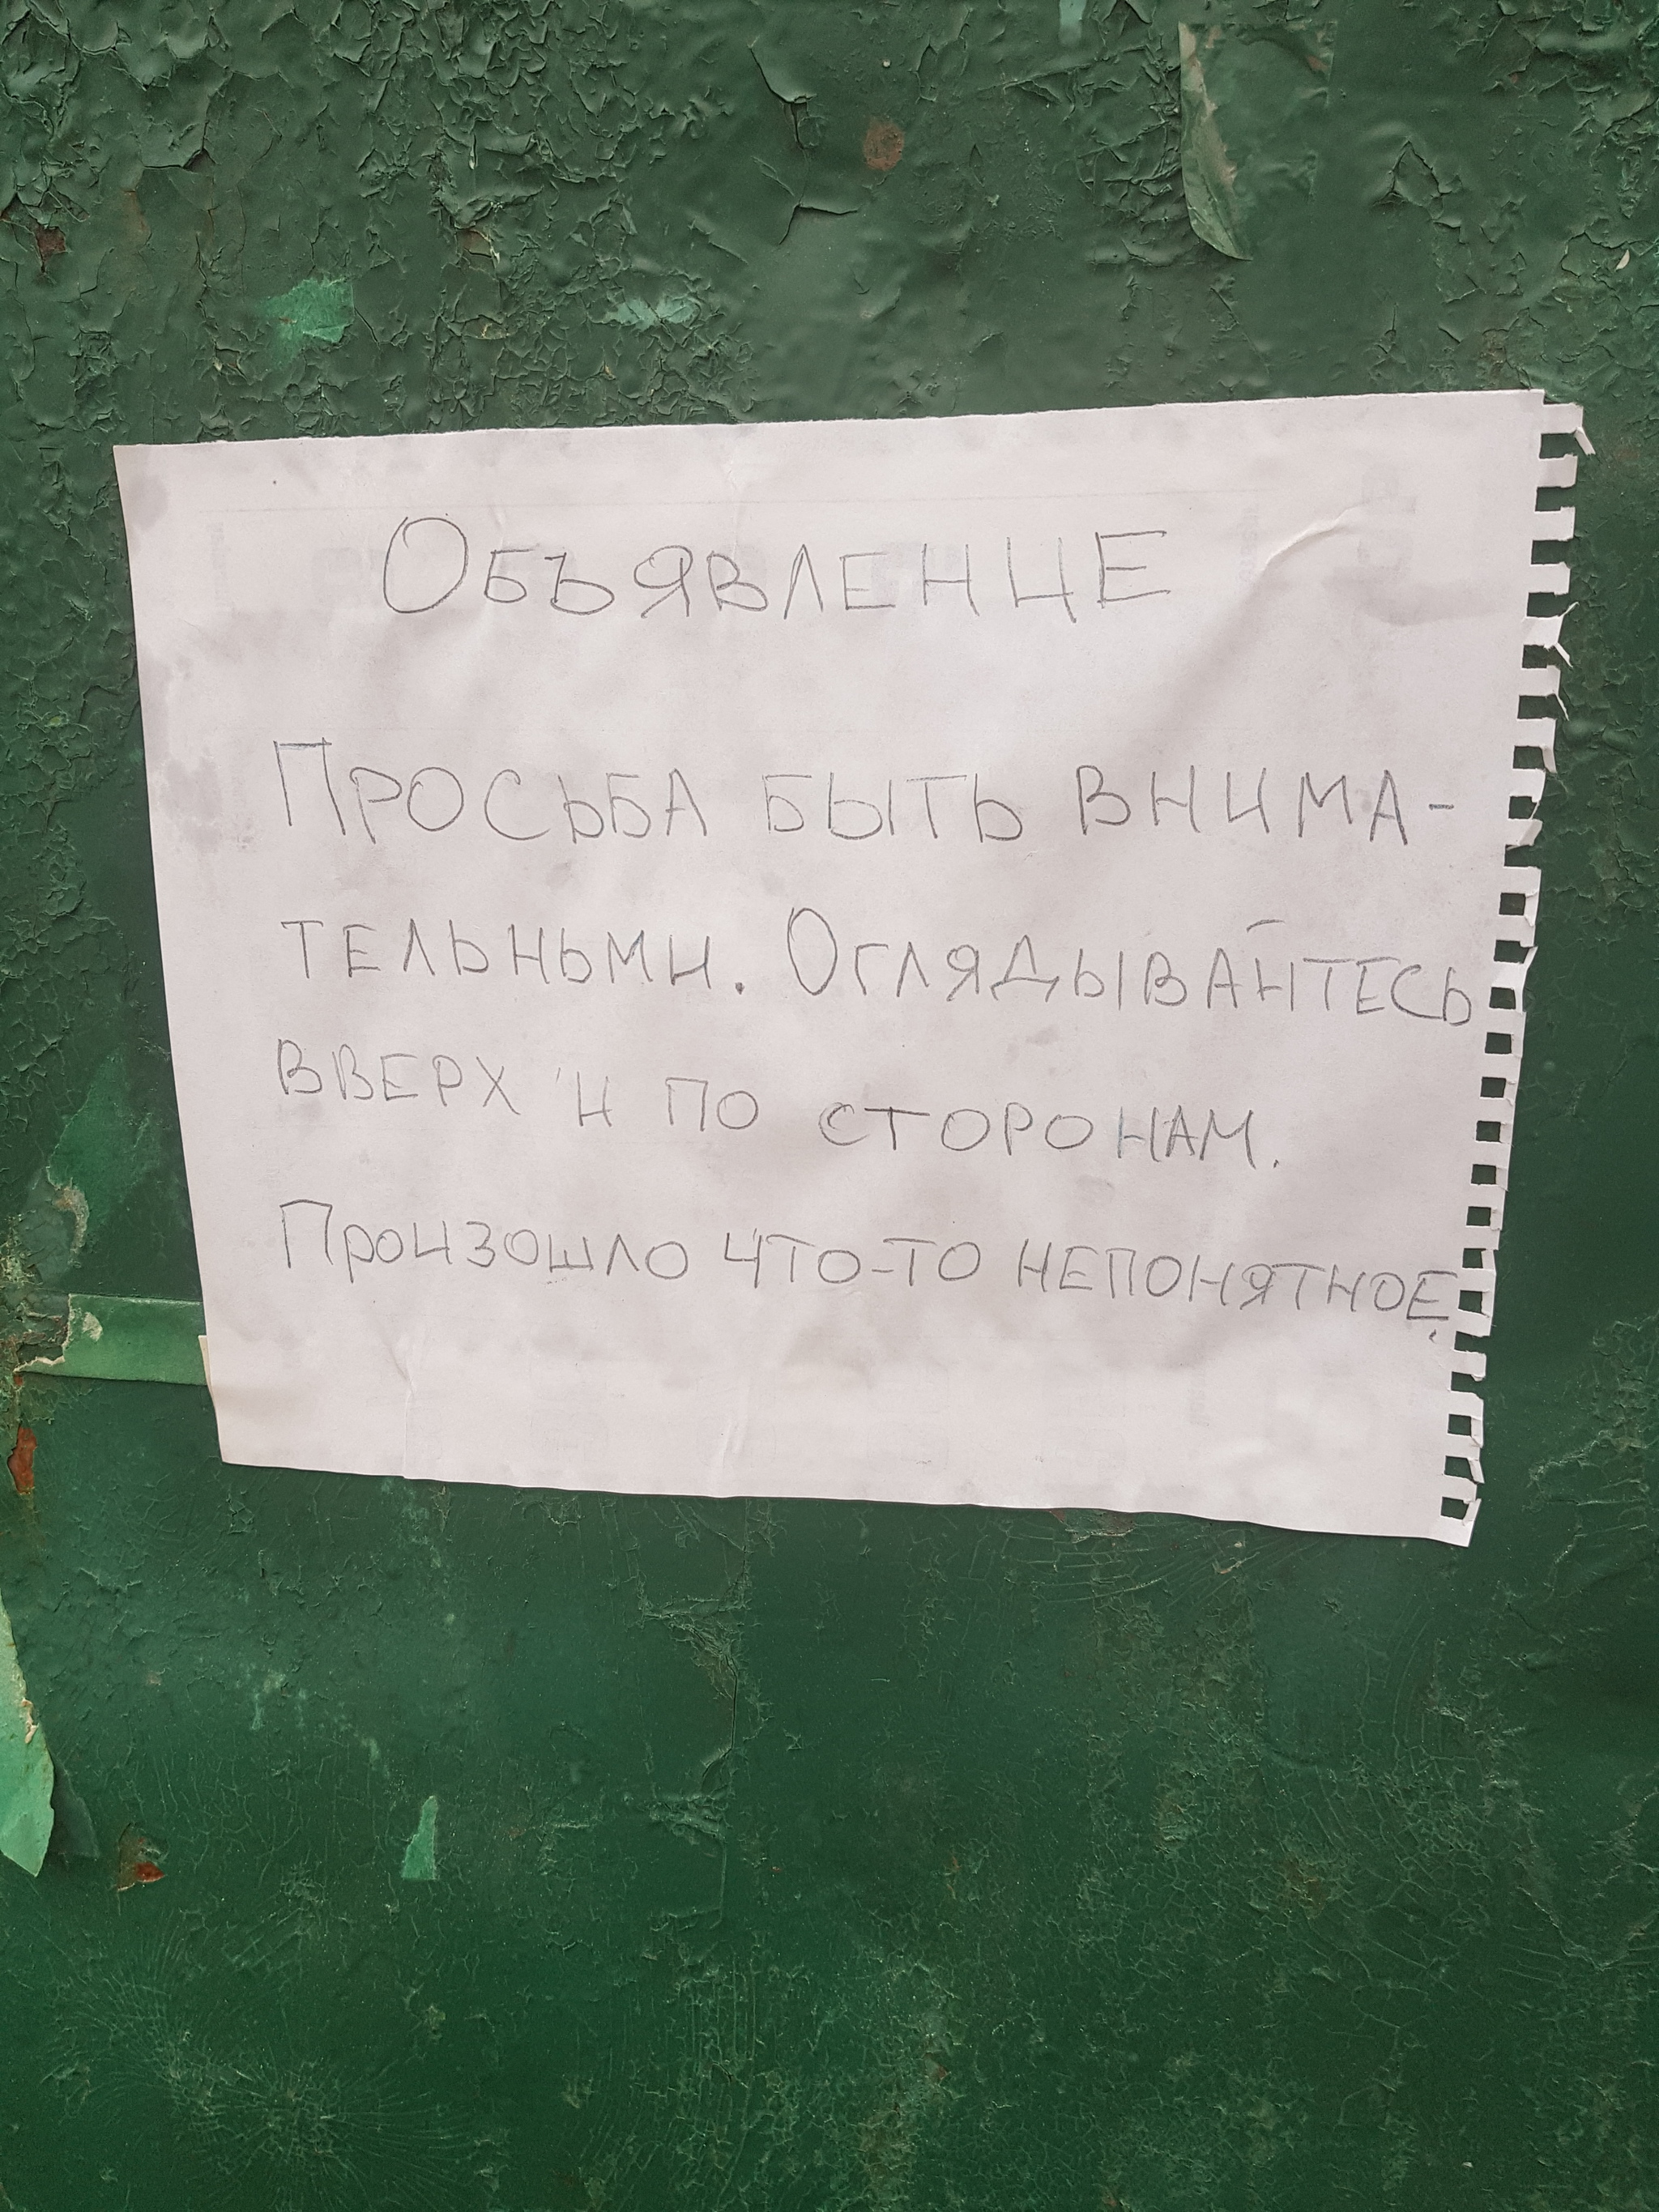 Объявление
Просьба быть внима-
тельными. Оглядывайтесь
вверх и по сторонам.
Произошло что-то непонятное.